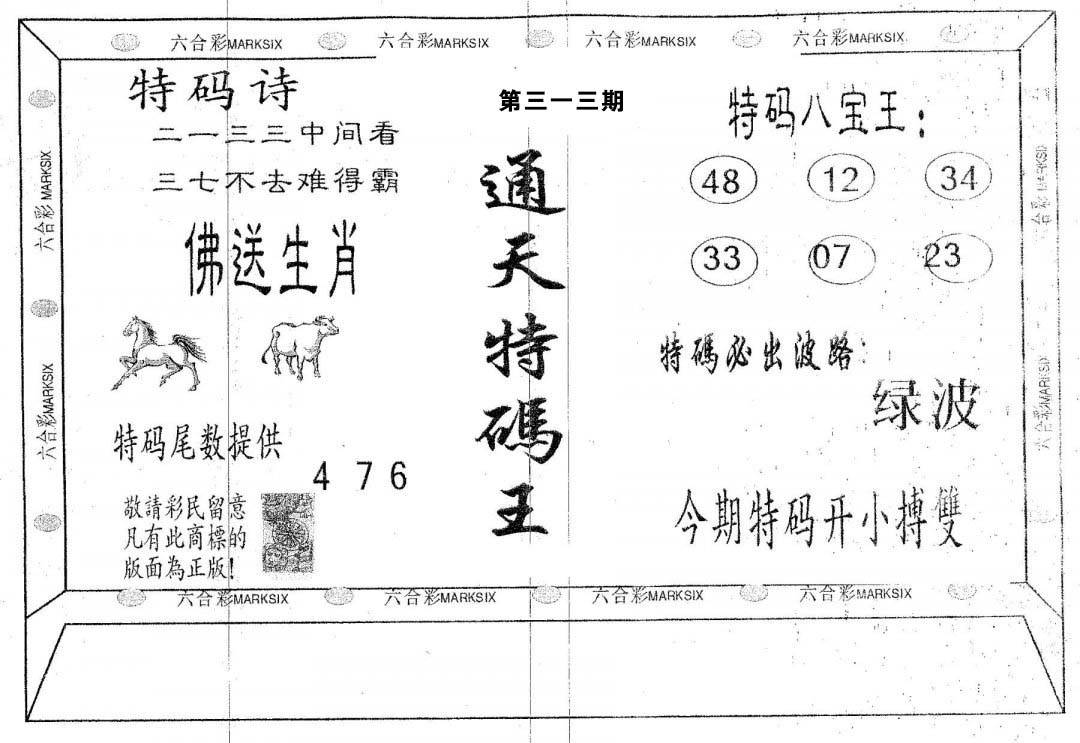 六合彩MARKSIX 六合彩MARKSIX 六合彩MARKSIX 六合彩MARKSIX
六合彩MARKSIX
六合彩MARKSIX
特码诗
二一三三中间看
三七不去难得霸
佛送生肖
特码尾数提供
4 7 6
敬請彩民留意
凡有此商標的
版面為正版!
第三一三期
通天特碼王
特码八宝王:
48 12 34
33 07 23
特碼必出波路:
绿波
今期特码开小搏雙
六合彩MARKSIX
六合彩MARKSIX
六合彩MARKSIX 六合彩MARKSIX 六合彩MARKSIX 六合彩MARKSIX